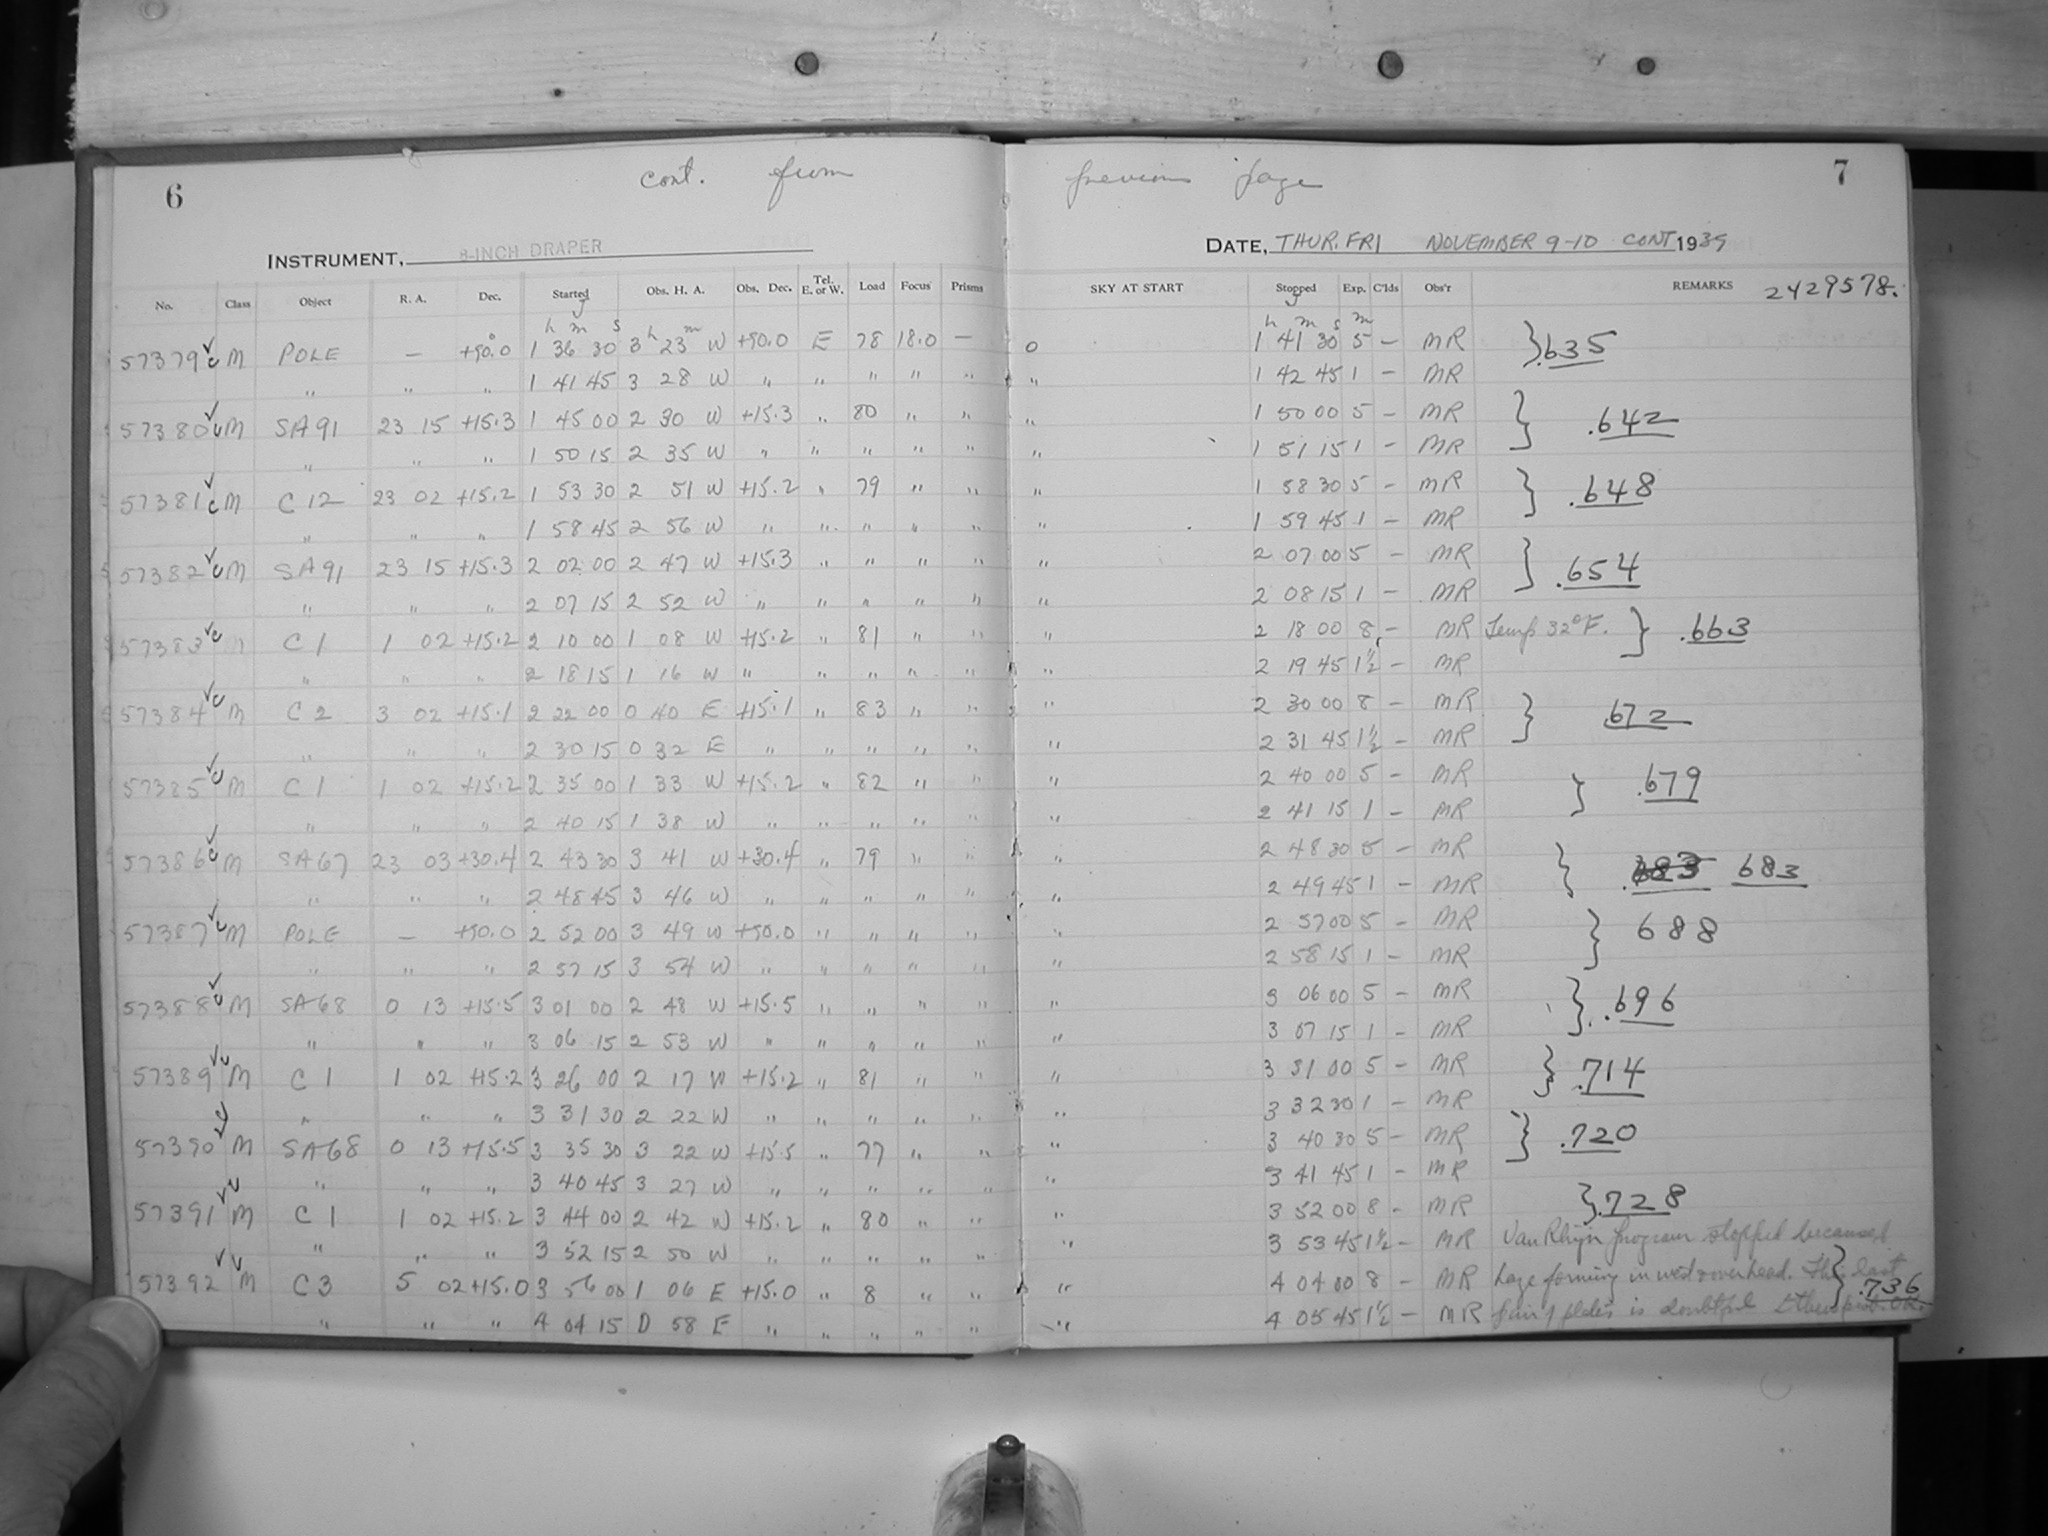 6 cont. from previous page 7
INSTRUMENT, 8-INCH DRAPER DATE, THUR. FRI NOVEMBER 9-10 CONT 1939
No. Class Object R. A. Dec. Started Obs. H. A. Obs. Dec. Tel. E. or W. Load Focus Prisms SKY AT START Stopped Exp. C'lds Obs'r REMARKS 2429578.
h m s h m h m s m
57379 M POLE — +90.0 1 36 30 3 23 W +90.0 E 78 18.0 — 0 1 41 30 5 — MR } .635
" " " 1 41 45 3 28 W " " " " " " 1 42 45 1 — MR
57380 M SA91 23 15 +15.3 1 45 00 2 30 W +15.3 " 80 " " " 1 50 00 5 — MR } .642
" " " 1 50 15 2 35 W " " " " " " 1 51 15 1 — MR
57381 M C12 23 02 +15.2 1 53 30 2 51 W +15.2 " 79 " " " 1 58 30 5 — MR } .648
" " " 1 58 45 2 56 W " " " " " " 1 59 45 1 — MR
57382 M SA91 23 15 +15.3 2 02 00 2 47 W +15.3 " " " " " 2 07 00 5 — MR } .654
" " " 2 07 15 2 52 W " " " " " " 2 08 15 1 — MR
57383 M C1 1 02 +15.2 2 10 00 1 08 W +15.2 " 81 " " " 2 18 00 8 — MR Temp 32°F. } .663
" " " 2 18 15 1 16 W " " " " " " 2 19 45 1½ — MR
57384 M C2 3 02 +15.1 2 22 00 0 40 E +15.1 " 83 " " " 2 30 00 8 — MR } .672
" " " 2 30 15 0 32 E " " " " " " 2 31 45 1½ — MR
57385 M C1 1 02 +15.2 2 35 00 1 33 W +15.2 " 82 " " " 2 40 00 5 — MR } .679
" " " 2 40 15 1 38 W " " " " " " 2 41 15 1 — MR
57386 M SA67 23 03 +30.4 2 43 30 3 41 W +30.4 " 79 " " " 2 48 30 5 — MR } 683
" " " 2 48 45 3 46 W " " " " " " 2 49 45 1 — MR
57387 M POLE — +90.0 2 52 00 3 49 W +90.0 " " " " " 2 57 00 5 — MR } 688
" " " 2 57 15 3 54 W " " " " " " 2 58 15 1 — MR
57388 M SA68 0 13 +15.5 3 01 00 2 48 W +15.5 " " " " " 3 06 00 5 — MR } .696
" " " 3 06 15 2 53 W " " " " " " 3 07 15 1 — MR
57389 M C1 1 02 +15.2 3 26 00 2 17 W +15.2 " 81 " " " 3 31 00 5 — MR } .714
" " " 3 31 30 2 22 W " " " " " " 3 32 30 1 — MR
57390 M SA68 0 13 +15.5 3 35 30 3 22 W +15.5 " 77 " " " 3 40 30 5 — MR } .720
" " " 3 40 45 3 27 W " " " " " " 3 41 45 1 — MR
57391 M C1 1 02 +15.2 3 44 00 2 42 W +15.2 " 80 " " " 3 52 00 8 — MR } .728
" " " 3 52 15 2 50 W " " " " " " 3 53 45 1½ — MR Van Rhijn program stopped because of
57392 M C3 5 02 +15.0 3 56 00 1 06 E +15.0 " 8 " " " 4 04 00 8 — MR haze forming in west & overhead. The last } .736
" " " 4 04 15 0 58 E " " " " " " 4 05 45 1½ — MR pair of plates is doubtful